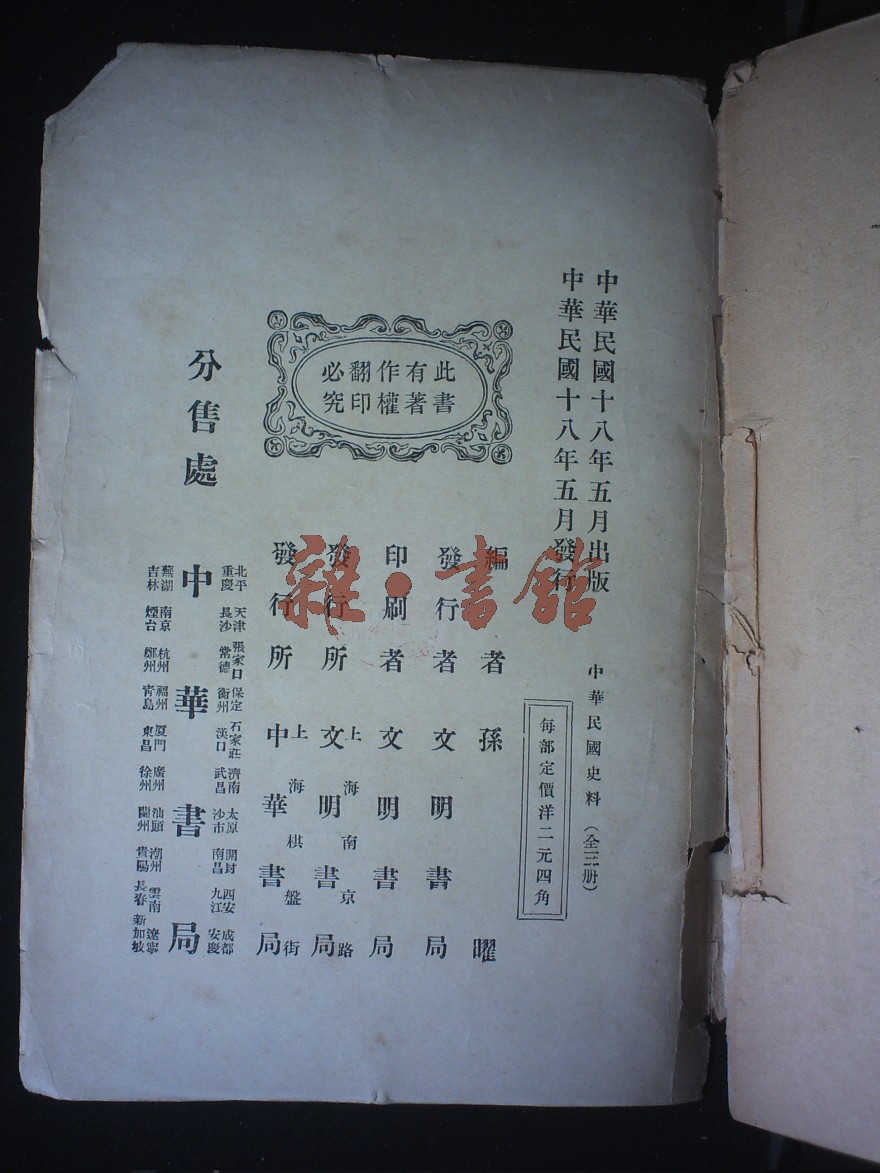 中華民國十八年五月出版
中華民國十八年五月發行
中華民國史料（全三册）
每部定價洋二元四角
此書
有著
作權
翻印
必究
編者孫曜
發行者文明書局
印刷者文明書局
上海南京路
發行所文明書局
上海棋盤街
發行所中華書局
分售處
北平 天津 張家口 保定 石家莊 濟南 太原 開封 西安 成都
重慶 長沙 常德 衡州 漢口 武昌 沙市 南昌 九江 安慶
中華書局
蕪湖 南京 杭州 福州 厦門 廣州 汕頭 潮州 雲南 遼寧
吉林 煙台 鄭州 青島 東昌 徐州 蘭州 貴陽 長春 新加坡
雜·書館